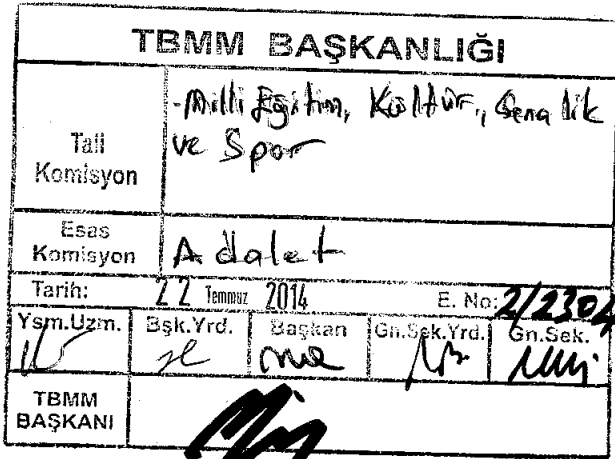 TBMM BAŞKANLIĞI
Tali Komisyon
-Milli Eğitim, Kültür, Gençlik
ve Spor
Esas Komisyon
Adalet
Tarih: 22 Temmuz 2014 E. No: 2/2304
Ysm.Uzm. Bşk.Yrd. Başkan Gn.Sek.Yrd. Gn.Sek.
TBMM BAŞKANI